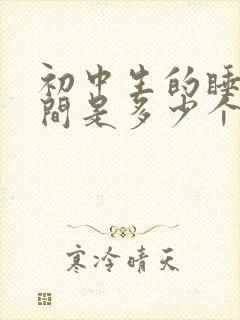 初中生的睡
間是多少个
寒冷晴天